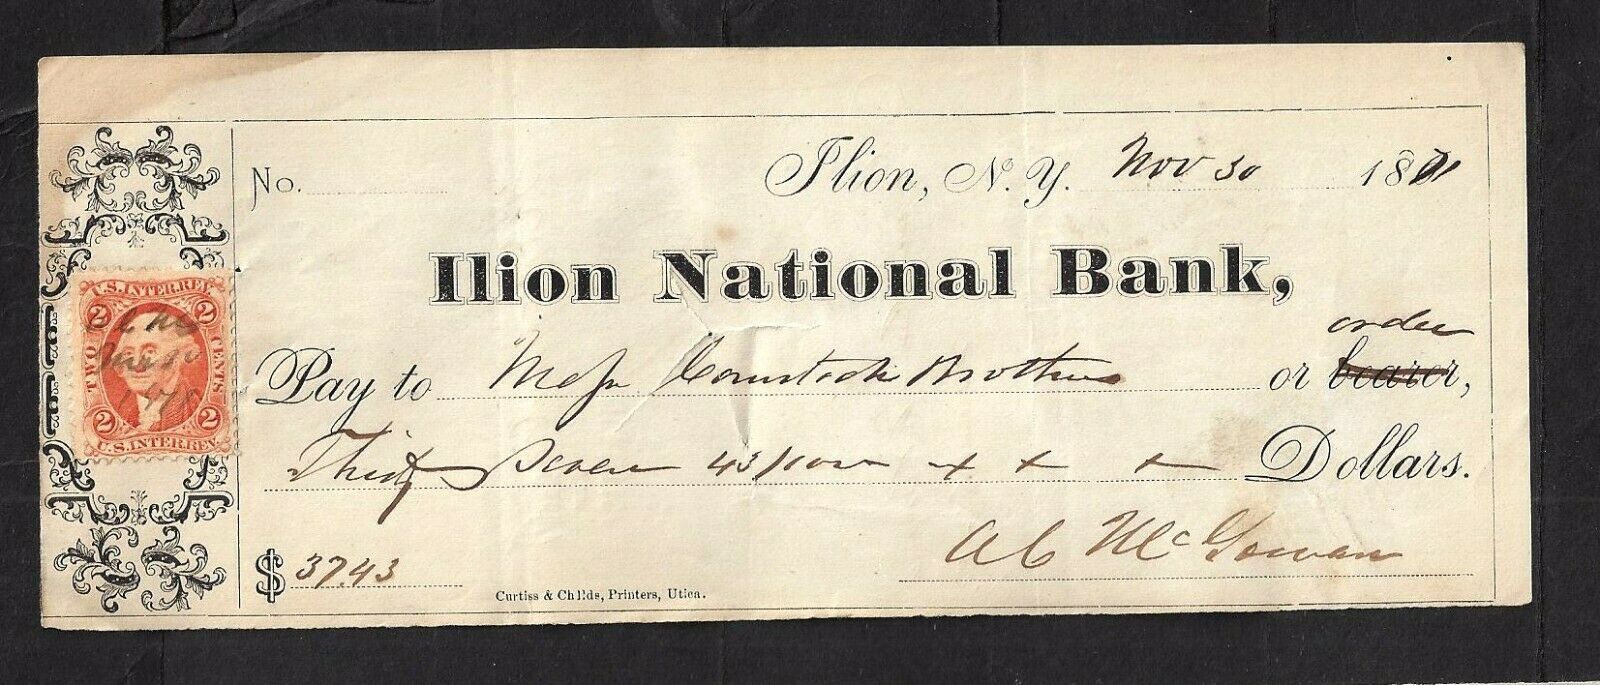 No. Ilion, N.Y. Nov 30 1871
Ilion National Bank,
order
Pay to Mess Comstock Brothers or bearer,
Thirty Seven 43/100 x x x Dollars.
A C McGowan
$ 37.43
Curtiss & Childs, Printers, Utica.
U.S. INTER. REV.
2 2
TWO CENTS
2 2
U.S. INTER. REV.